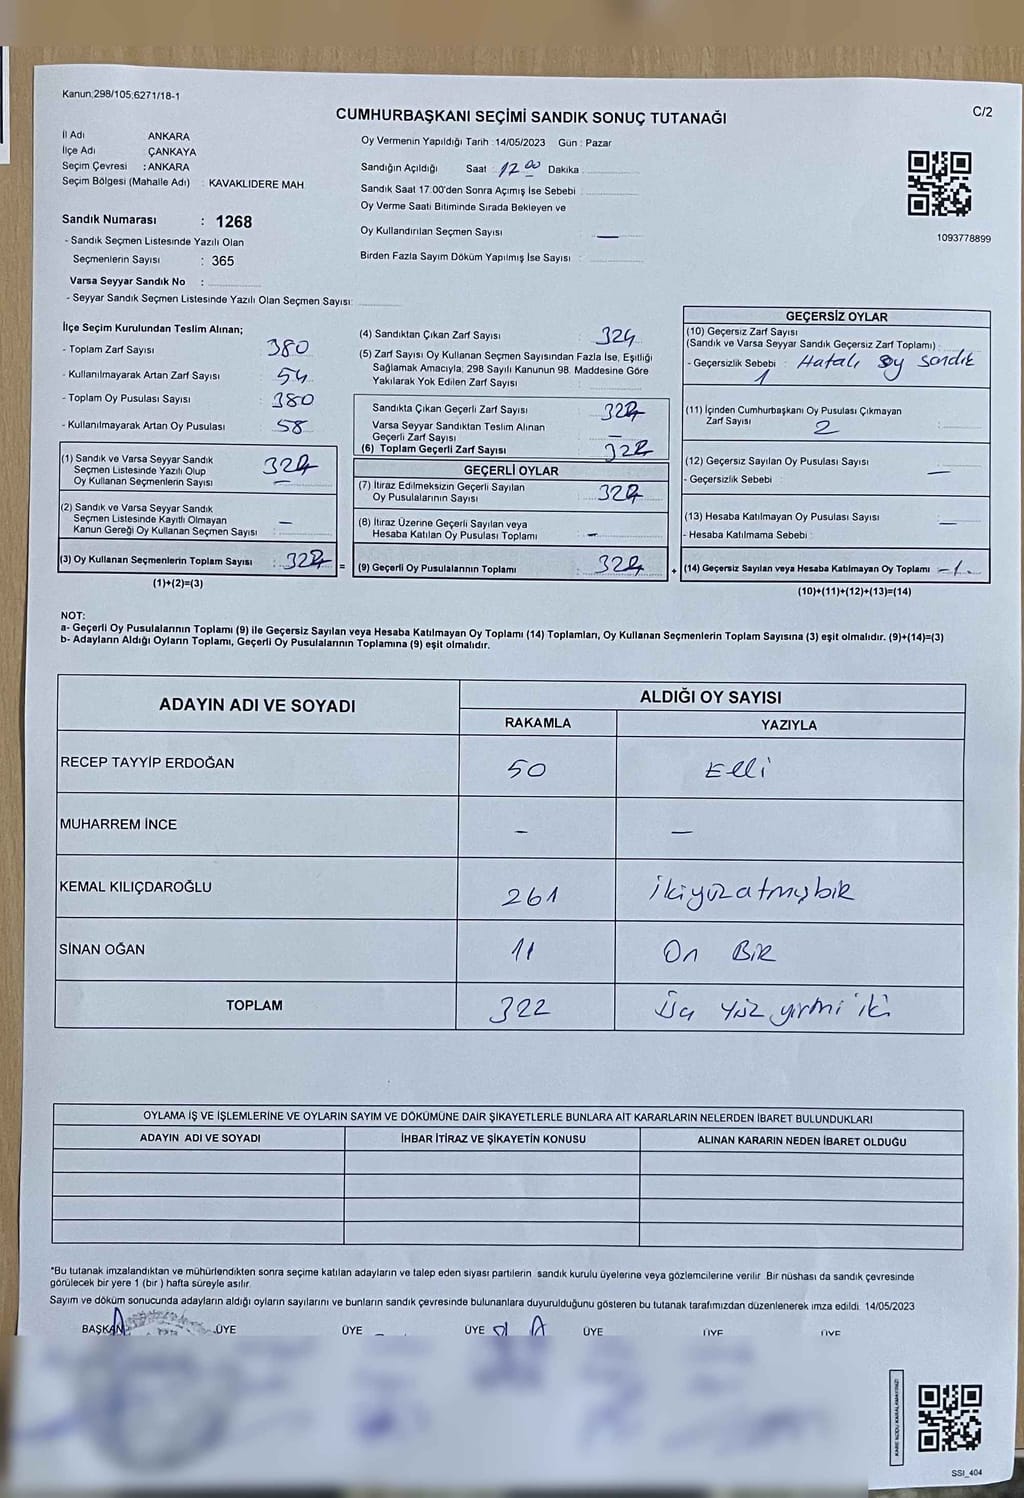 Kanun:298/105,6271/18-1
C/2
CUMHURBAŞKANI SEÇİMİ SANDIK SONUÇ TUTANAĞI
İl Adı ANKARA
İlçe Adı ÇANKAYA
Seçim Çevresi : ANKARA
Seçim Bölgesi (Mahalle Adı) : KAVAKLIDERE MAH
Sandık Numarası : 1268
- Sandık Seçmen Listesinde Yazılı Olan
Seçmenlerin Sayısı : 365
Varsa Seyyar Sandık No :
- Seyyar Sandık Seçmen Listesinde Yazılı Olan Seçmen Sayısı:
Oy Vermenin Yapıldığı Tarih : 14/05/2023 Gün : Pazar
Sandığın Açıldığı Saat : 17 00 Dakika
Sandık Saat 17:00'den Sonra Açımış İse Sebebi :
Oy Verme Saati Bitiminde Sırada Bekleyen ve
Oy Kullandırılan Seçmen Sayısı : —
Birden Fazla Sayım Döküm Yapılmış İse Sayısı :
1093778899
İlçe Seçim Kurulundan Teslim Alınan;
- Toplam Zarf Sayısı : 380
- Kullanılmayarak Artan Zarf Sayısı : 54
- Toplam Oy Pusulası Sayısı : 380
- Kullanılmayarak Artan Oy Pusulası : 58
(1) Sandık ve Varsa Seyyar Sandık
Seçmen Listesinde Yazılı Olup
Oy Kullanan Seçmenlerin Sayısı
(2) Sandık ve Varsa Seyyar Sandık
Seçmen Listesinde Kayıtlı Olmayan
Kanun Gereği Oy Kullanan Seçmen Sayısı : —
(3) Oy Kullanan Seçmenlerin Toplam Sayısı :
(1)+(2)=(3)
=
(4) Sandıktan Çıkan Zarf Sayısı : 324
(5) Zarf Sayısı Oy Kullanan Seçmen Sayısından Fazla İse, Eşitliği
Sağlamak Amacıyla; 298 Sayılı Kanunun 98. Maddesine Göre
Yakılarak Yok Edilen Zarf Sayısı :
Sandıkta Çıkan Geçerli Zarf Sayısı :
Varsa Seyyar Sandıktan Teslim Alınan
Geçerli Zarf Sayısı : —
(6) Toplam Geçerli Zarf Sayısı :
GEÇERLİ OYLAR
(7) İtiraz Edilmeksizin Geçerli Sayılan
Oy Pusulalarının Sayısı :
(8) İtiraz Üzerine Geçerli Sayılan veya
Hesaba Katılan Oy Pusulası Toplamı : —
(9) Geçerli Oy Pusulalarının Toplamı :
+
GEÇERSİZ OYLAR
(10) Geçersiz Zarf Sayısı
(Sandık ve Varsa Seyyar Sandık Geçersiz Zarf Toplamı) :
- Geçersizlik Sebebi : Hatalı oy sandık
1
(11) İçinden Cumhurbaşkanı Oy Pusulası Çıkmayan
Zarf Sayısı 2
(12) Geçersiz Sayılan Oy Pusulası Sayısı : —
- Geçersizlik Sebebi :
(13) Hesaba Katılmayan Oy Pusulası Sayısı : —
- Hesaba Katılmama Sebebi :
(14) Geçersiz Sayılan veya Hesaba Katılmayan Oy Toplamı
(10)+(11)+(12)+(13)=(14)
NOT:
a- Geçerli Oy Pusulalarının Toplamı (9) ile Geçersiz Sayılan veya Hesaba Katılmayan Oy Toplamı (14) Toplamları, Oy Kullanan Seçmenlerin Toplam Sayısına (3) eşit olmalıdır. (9)+(14)=(3)
b- Adayların Aldığı Oyların Toplamı, Geçerli Oy Pusulalarının Toplamına (9) eşit olmalıdır.
ADAYIN ADI VE SOYADI ALDIĞI OY SAYISI
RAKAMLA YAZIYLA
RECEP TAYYİP ERDOĞAN 50 Elli
MUHARREM İNCE — —
KEMAL KILIÇDAROĞLU 261 İkiyüzatmışbir
SİNAN OĞAN 11 On Bir
TOPLAM 322 Üç Yüz yirmi iki
OYLAMA İŞ VE İŞLEMLERİNE VE OYLARIN SAYIM VE DÖKÜMÜNE DAİR ŞİKAYETLERLE BUNLARA AİT KARARLARIN NELERDEN İBARET BULUNDUKLARI
ADAYIN ADI VE SOYADI İHBAR İTİRAZ VE ŞİKAYETİN KONUSU ALINAN KARARIN NEDEN İBARET OLDUĞU
*Bu tutanak imzalandıktan ve mühürlendikten sonra seçime katılan adayların ve talep eden siyasi partilerin sandık kurulu üyelerine veya gözlemcilerine verilir. Bir nüshası da sandık çevresinde
görülecek bir yere 1 (bir ) hafta süreyle asılır.
Sayım ve döküm sonucunda adayların aldığı oyların sayılarını ve bunların sandık çevresinde bulunanlara duyurulduğunu gösteren bu tutanak tarafımızdan düzenlenerek imza edildi. 14/05/2023
BAŞKAN ÜYE ÜYE ÜYE ÜYE ÜYE ÜYE
KARE KODU KARALAMAYINIZ!
SSI_404